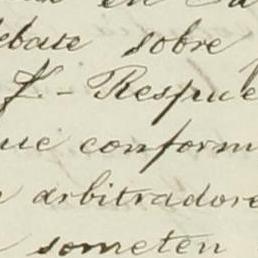 en
debate sobre
f. - Respue
que conform
arbitradore
someten